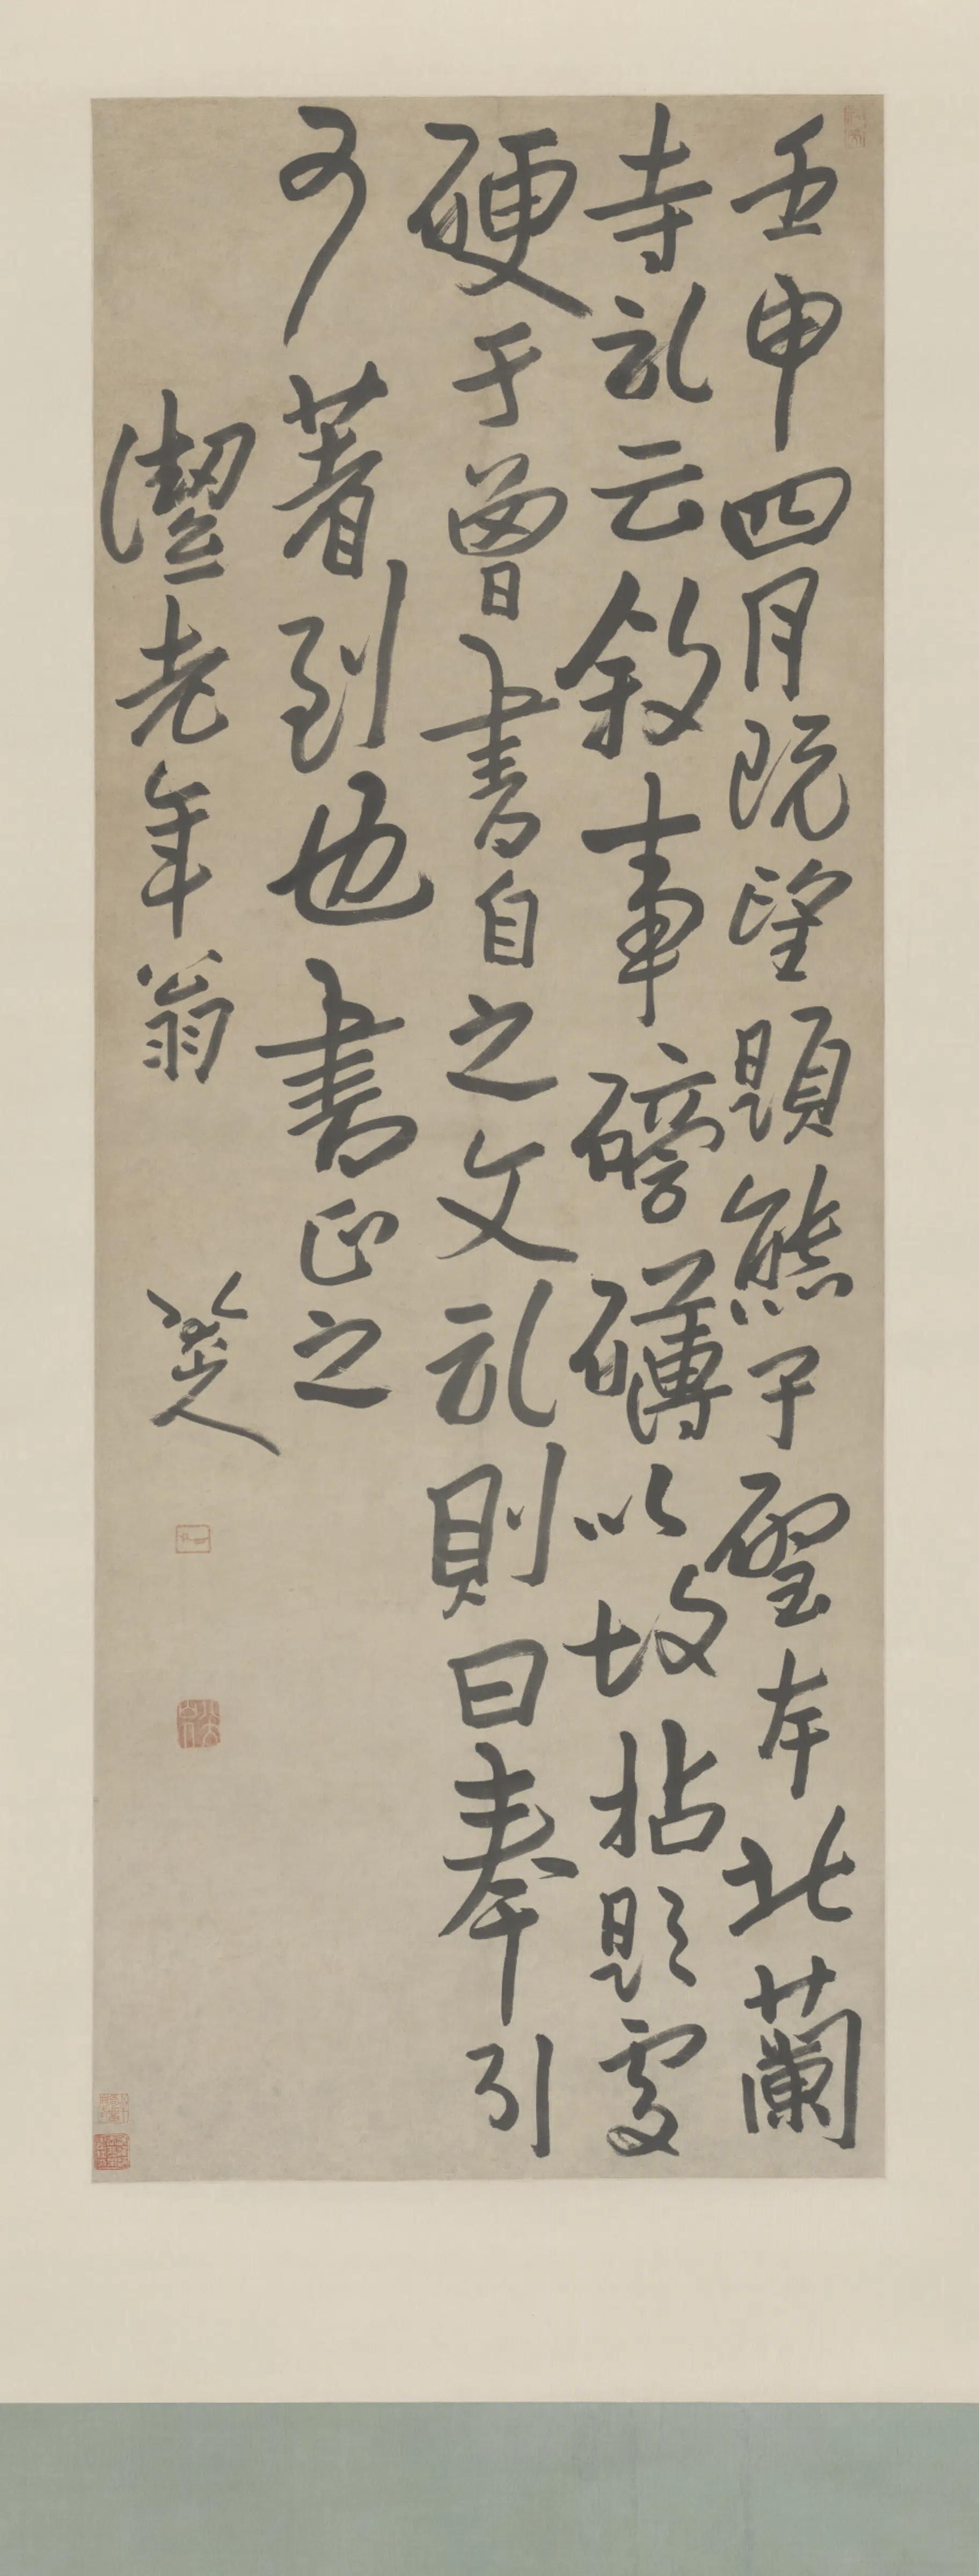 壬申四月既望題熊子聖本北蘭
寺礼云敘事磅礴以拈題處
硬于曾書自之文礼則曰奉引
著到也書正之
老年翁
八大山人